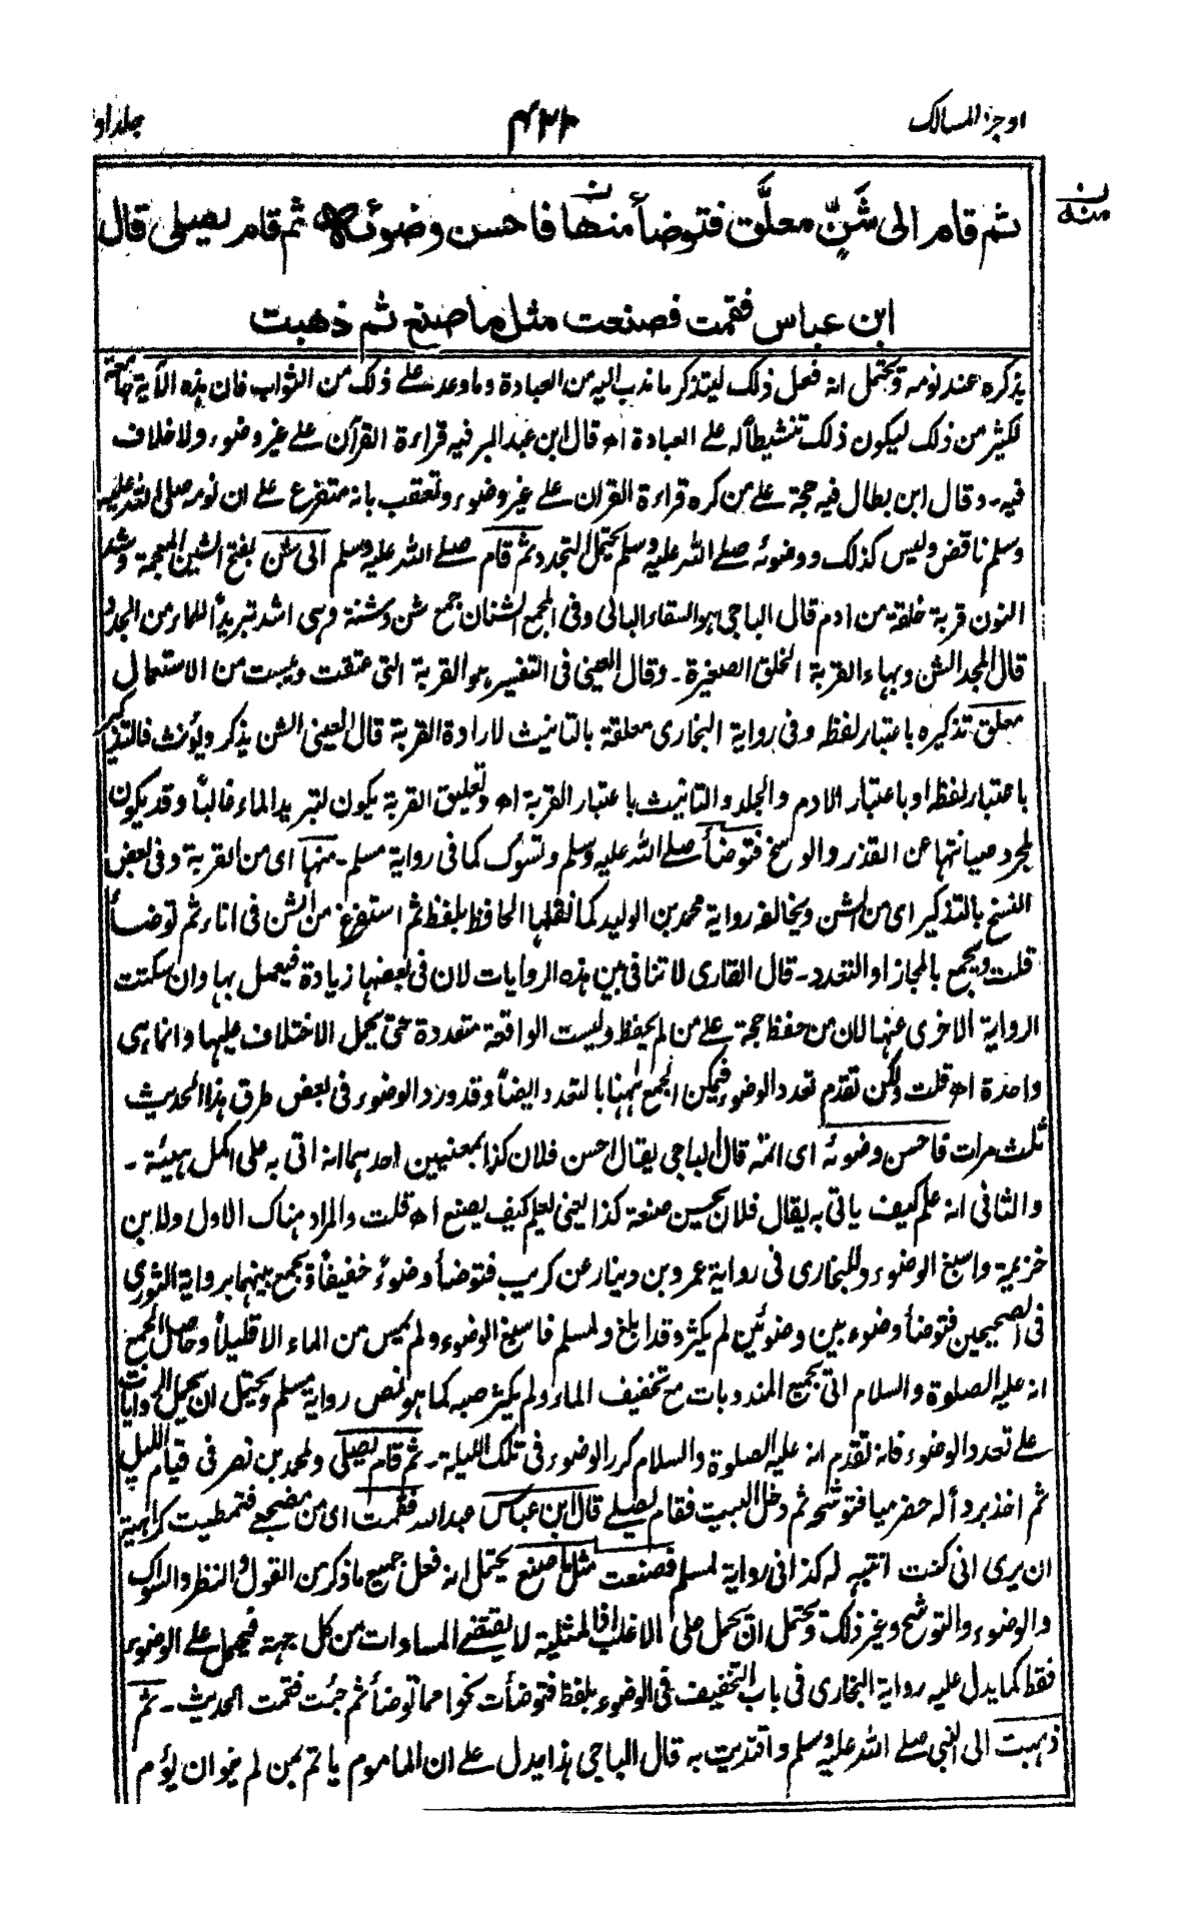 اوجز المسالك
٤٢٢
جلد او
ثم قام الى شَنٍّ معلَّق فتوضأ منها فاحسن وضوئه ثم قام يصلي قال
منه
ابن عباس فقمت فصنعت مثل ما صنع ثم ذهبت
يذكره عند نومه ويحتمل انه فعل ذلك ليتذكر ما ندب اليه من العبادة وما وعد على ذلك من الثواب فان هذه الآية جامعة
لكثير من ذلك ليكون ذلك تنشيطاً له على العبادة اه قال ابن عبد البر فيه قراءة القرآن على غير وضوء ولا خلاف
فيه۔ وقال ابن بطال فيه حجة على من كره قراءة القرآن على غير وضوء وتعقب بانه متفرع على ان نومه صلى الله عليه
وسلم ناقض وليس كذلك ووضوئه صلے الله عليه وسلم يحتمل التجدد ثم قام صلے الله عليه وسلم الى شن بفتح الشين المعجمة وشد
النون قربة خلقة من ادم قال الباجي هو السقاء البالي وفى المجمع الشنان جمع شن وشنة وهى اشد تبريداً للماء من الجدد
قال المجد الشن وبهاء القربة الخلق الصغيرة۔ وقال العينى فى التفسير هو القربة التى عتقت ويبست من الاستعمال
معلق تذكيره باعتبار لفظه وفى رواية البخارى معلقة بالتانيث لارادة القربة قال العينى الشن يذكر ويؤنث فالتذكير
باعتبار لفظه او باعتبار الادم والجلد والتانيث باعتبار القربة اه وتعليق القربة يكون لتبريد الماء غالباً وقد يكون
لمجرد صيانتها عن القذر والوسخ فتوضأ صلے الله عليه وسلم وتسوك كما فى رواية مسلم۔ منها اى من القربة وفى بعض
النسخ بالتذكير اى من الشن ويخالفه رواية محمد بن الوليد كما نقلها الحافظ بلفظ ثم استفرغ من الشن فى اناء ثم توضأ
قلت ويجمع بالمجاز او التعدد۔ قال القارى لا تنافى بين هذه الروايات لان فى بعضها زيادة فيعمل بها وان سكتت
الرواية الاخرى عنها لان من حفظ حجة على من لم يحفظ وليست الواقعة متعددة حتى يحمل الاختلاف عليها وانما هى
واحدة اه قلت ولكن تقدم تعدد الوضوء فيمكن الجمع ههنا بالتعدد ايضاً وقد ورد الوضوء فى بعض طرق هذا الحديث
ثلث مرات فاحسن وضوئه اى اتمه قال الباجى يقال احسن فلان كذا بمعنيين احدهما انه اتى به على اكمل هيئة۔
والثانى انه علم كيف ياتى به يقال فلان يحسن صنعة كذا يعنى يعلم كيف يصنع اه قلت والمراد هناك الاول ولابن
خزيمة واسبغ الوضوء وللبخارى فى رواية عمرو بن دينار عن كريب فتوضأ وضوءً خفيفاً ويجمع بينهما برواية الثورى
فى الصحيحين فتوضأ وضوء بين وضوئين لم يكثر وقد ابلغ ولمسلم فاسبغ الوضوء ولم يمس من الماء الا قليلاً وحاصل الجمع
انه عليه الصلوة والسلام اتى بجميع المندوبات مع تخفيف الماء ولم يكثر صبه كما هو نص رواية مسلم ويحتمل ان يحمل الروايات
على تعدد الوضوء فانه تقدم انه عليه الصلوة والسلام كرر الوضوء فى تلك الليلة۔ ثم قام يصلى ولمحمد بن نصر فى قيام الليل
ثم اخذ برداً له حضرميا فتوشحه ثم دخل البيت فقام يصلے قال ابن عباس عبد الله فقمت اى من مضجعى فتمطيت كراهية
ان يرى انى كنت انتبه له كذا فى رواية لمسلم فصنعت مثل ما صنع يحتمل انه فعل جميع ما ذكر من القول والنظر والسواك
والوضوء والتوشح وغير ذلك ويحتمل ان يحمل على الاغلب فالمثلية لا يقتضے المساوات من كل جهة فيحمل على الوضوء
فقط كما يدل عليه رواية البخارى فى باب التخفيف فى الوضوء بلفظ فتوضأت نحوا مما توضأ ثم جئت فقمت الحديث۔ ثم
ذهبت الى النبى صلے الله عليه وسلم واقتديت به قال الباجى هذا يدل على ان الماموم ياتم بمن لم ينو ان يؤم